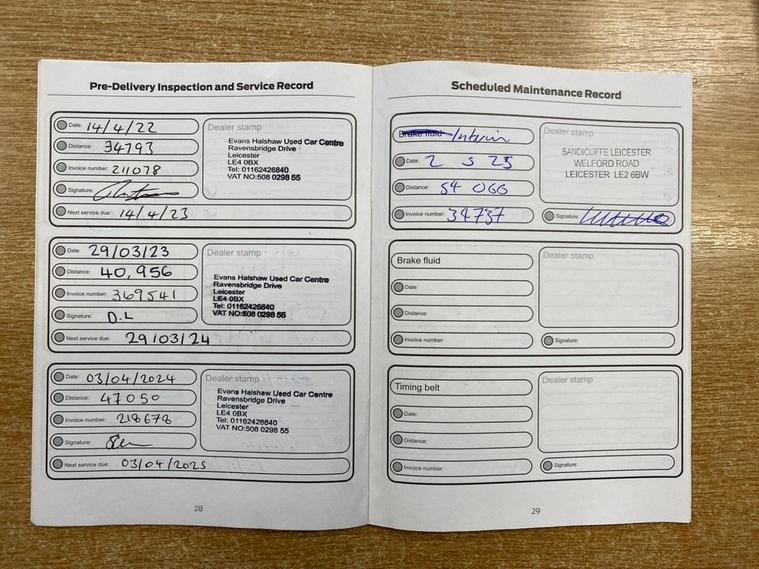 Pre-Delivery Inspection and Service Record
Date: 14/4/22
Distance: 34793
Invoice number: 211078
Signature:
Next service due: 14/4/23
Dealer stamp
Evans Halshaw Used Car Centre
Ravensbridge Drive
Leicester
LE4 0BX
Tel: 01162426840
VAT NO:508 0298 55
Date: 29/03/23
Distance: 40,956
Invoice number: 369541
Signature: D.L
Next service due: 29/03/24
Dealer stamp
Evans Halshaw Used Car Centre
Ravensbridge Drive
Leicester
LE4 0BX
Tel: 01162426840
VAT NO:508 0298 55
Date: 03/04/2024
Distance: 47050
Invoice number: 218678
Signature:
Next service due: 03/04/2025
Dealer stamp
Evans Halshaw Used Car Centre
Ravensbridge Drive
Leicester
LE4 0BX
Tel: 01162426840
VAT NO:508 0298 55
28
Scheduled Maintenance Record
Brake fluid Interim
Date: 2 5 25
Distance: 54 066
Invoice number: 34737
Dealer stamp
SANDICLIFFE LEICESTER
WELFORD ROAD
LEICESTER LE2 6BW
Signature:
Brake fluid
Date:
Distance:
Invoice number:
Dealer stamp
Signature:
Timing belt
Date:
Distance:
Invoice number:
Dealer stamp
Signature:
29